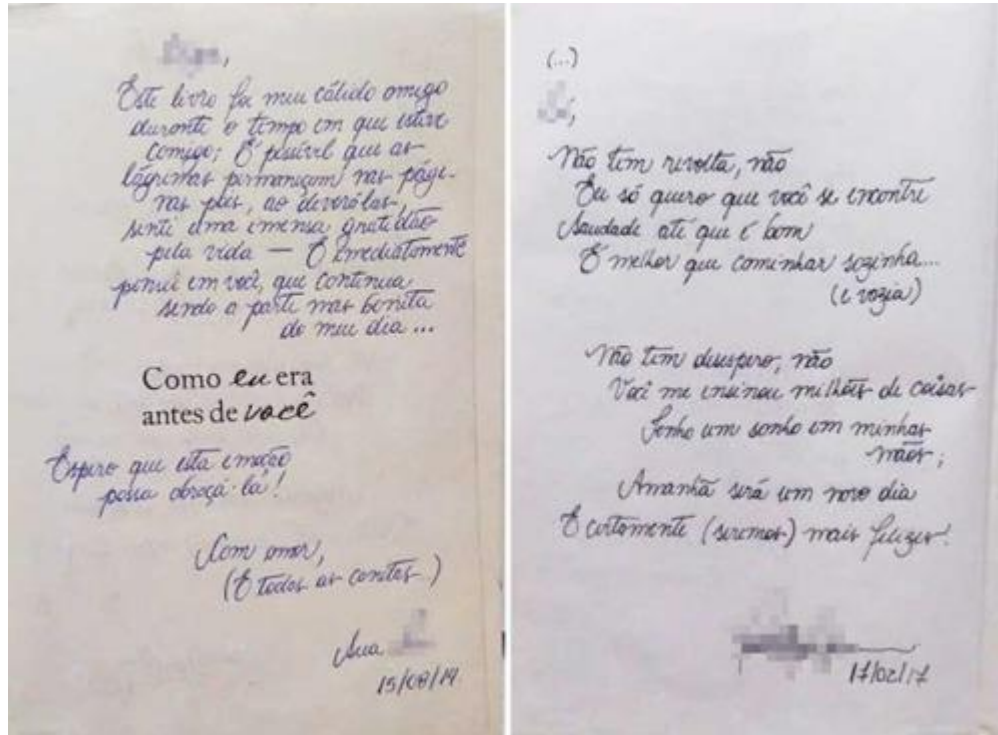 Este livro foi meu cálido amigo
durante o tempo em que esteve
comigo; É possível que as
lágrimas permaneçam nas pági-
nas pois, ao devorá-las,
senti uma imensa gratidão
pela vida — E imediatamente
pensei em você, que continua
sendo a parte mas bonita
do meu dia...
Como eu era
antes de você
Espero que esta emoção
possa abraçá-la!
Com amor,
(E todos os cantos.)
Sua
15/08/14
(...)
Não tem revolta, não
Eu só quero que você se encontre
Saudade até que é bom
É melhor que caminhar sozinha...
(e vazia)
Não tem desespero, não
Você me ensinou milhões de coisas
Tenho um sonho em minhas
mãos;
Amanhã será um novo dia
E certamente (seremos) mais felizes.
17/02/17